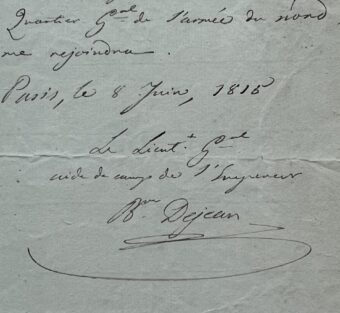 Quartier G.al de l'armée du nord
me rejoindra.
Paris, le 8 Juin, 1815
Le Lieut.t G.al
aide de camp de l'Empereur
B.on Dejean